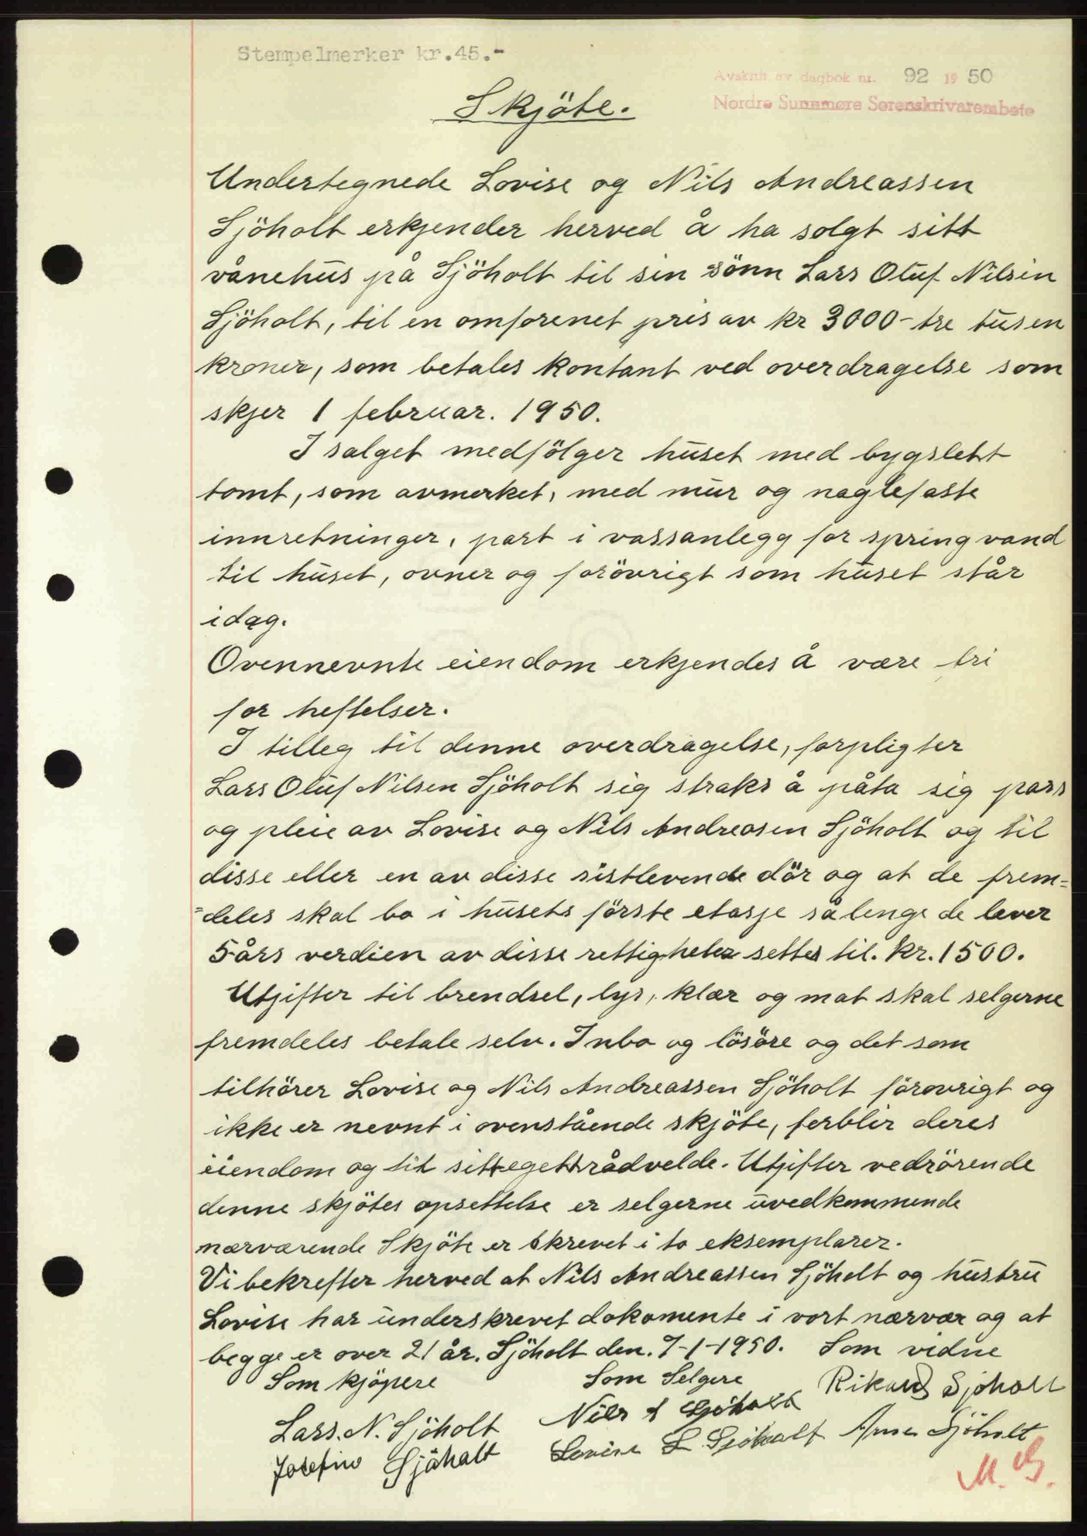 Stempelmerker kr.45.-
Avskrift av dagbok nr. 92 1950
Nordre Sunnmøre Sorenskrivarembete
Skjöte.
Undertegnede Lovise og Nils Andreassen
Sjöholt erkjender herved å ha solgt sitt
vånehus på Sjöholt til sin sönn Lars Oluf Nilsen
Sjöholt, til en omforenet pris av kr 3000- tre tusen
kroner, som betales kontant ved overdragelse som
skjer 1 februar. 1950.
I salget medfölger huset med bygslett
tomt, som avmerket, med mur og naglefaste
innretninger, part i vassanlegg for springvand
til huset, ovner og forövrigt som huset står
idag.
Ovennevnte eiendom erkjendes å være fri
for heftelser.
I tilleg til denne overdragelse, forpligter
Lars Oluf Nilsen Sjöholt sig straks å påta sig pass
og pleie av Lovise og Nils Andreasen Sjöholt og til
disse eller en av disse sistlevende dör og at de frem=
=deles skal bo i husets förste etasje så lenge de lever
5 års verdien av disse rettigheter settes til. kr. 1500.
Utjifter til brendsel, lys, klær og mat skal selgerne
fremdeles betale selv. Inbo og lösöre og det som
tilhörer Lovise og Nils Andreassen Sjöholt förovrigt og
ikke er nevnt i ovenstående skjöte, ferblir deres
eiendom og til sitt eget rådvelde. Utjifter vedrörende
denne skjötes opsettelse er selgerne uvedkommende
nærværende Skjöte er skrevet i to eksemplarer.
Vi bekrefter herved at Nils Andreassen Sjöholt og hustru
Lovise har underskrevet dokumente i vort nærvær og at
begge er over 21 år. Sjöholt den. 7-1-1950. Som vidne
Som kjöpere Som Selgere Rikard Sjøholt
Lars. N. Sjöholt Nils A Sjöholt
Josefine Sjöholt Lovise L Sjöholt Arne Sjöholt
M. G.